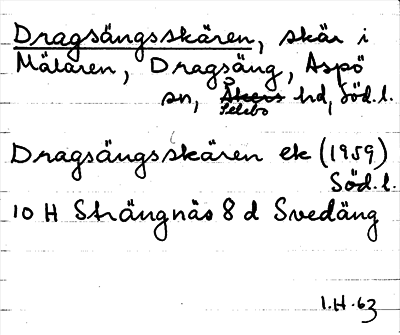 Dragsängsskären, skär i
Mälaren, Dragsäng, Aspö
sn, Åkers hd, Söd.l.
Selebo
Dragsängsskären ek (1959)
Söd.l.
10 H Strängnäs 8 d Svedäng
I.H.63